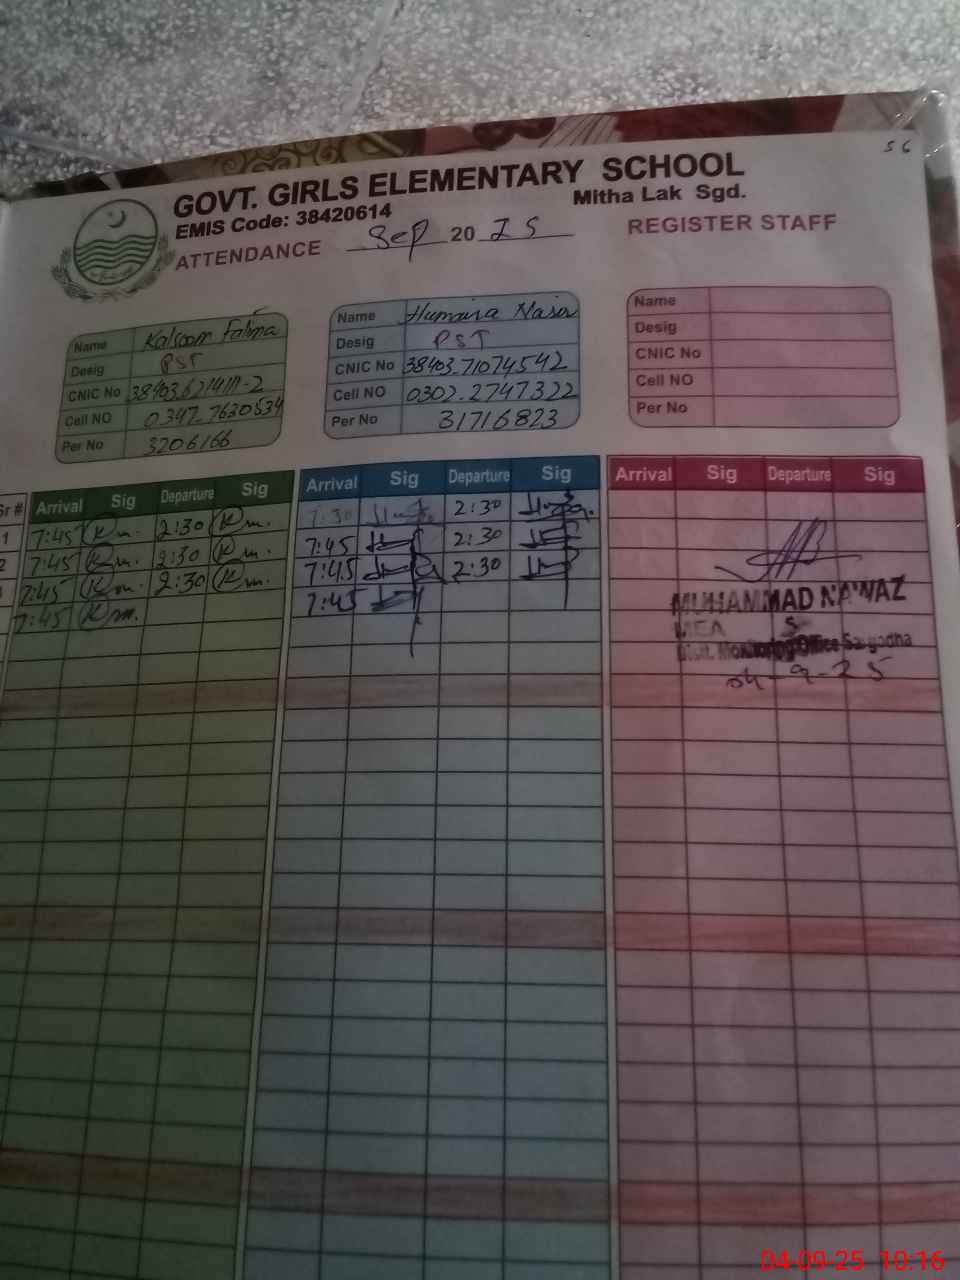 56
GOVT. GIRLS ELEMENTARY SCHOOL
EMIS Code: 38420614
Mitha Lak Sgd.
ATTENDANCE Sep 2025
REGISTER STAFF
Name Kalsoom Fatima
Desig PST
CNIC No
Cell NO 0347-7630534
Per No 3206166
Name Humaira Nasir
Desig PST
CNIC No 38403.71074542
Cell NO 0302.2747322
Per No 31716823
Name
Desig
CNIC No
Cell NO
Per No
Sr # Arrival Sig Departure Sig Arrival Sig Departure Sig Arrival Sig Departure Sig
1 7:45 Km. 2:30 Km. 7:30 2:30
2 7:45 Km. 2:30 Km. 7:45 2:30
7:45 Km 2:30 Km. 7:45 2:30
7:45 Km. 7:45
MUHAMMAD NAWAZ
MEA
Distt. Monitoring Office Sargodha
04-9-25
04-09-25 10:16